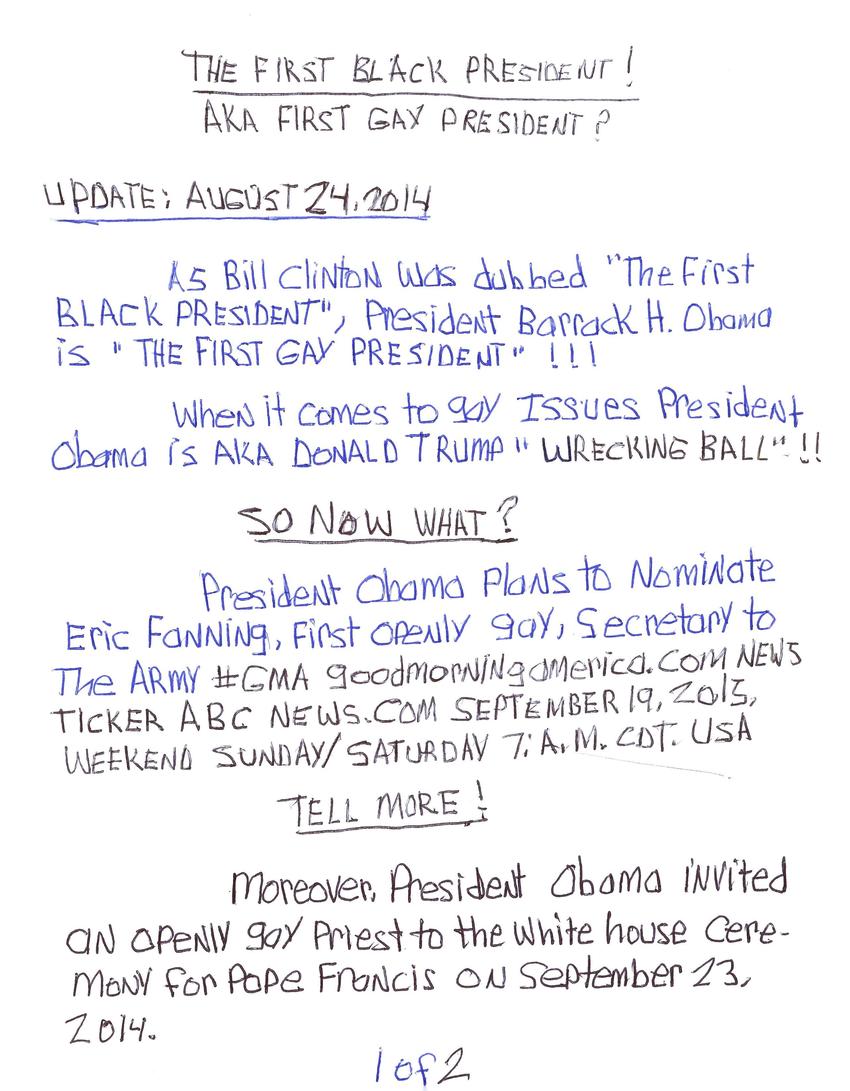 THE FIRST BLACK PRESIDENT!
AKA FIRST GAY PRESIDENT?
UPDATE; AUGUST 24, 2014
As Bill Clinton was dubbed "The First
BLACK PRESIDENT", President Barrack H. Obama
is "THE FIRST GAY PRESIDENT" !!!
When it comes to gay Issues President
Obama is AKA DONALD TRUMP "WRECKING BALL" !!
SO NOW WHAT?
President Obama Plans to Nominate
Eric Fanning, First openly gay, Secretary to
The ARMY #GMA goodmorningamerica.com NEWS
TICKER ABC NEWS.COM SEPTEMBER 19, 2015,
WEEKEND SUNDAY/SATURDAY 7; A.M. CDT. USA
TELL MORE!
Moreover, President Obama invited
an openly gay Priest to the White house Cere-
mony for Pope Francis on September 23,
2014.
1 of 2